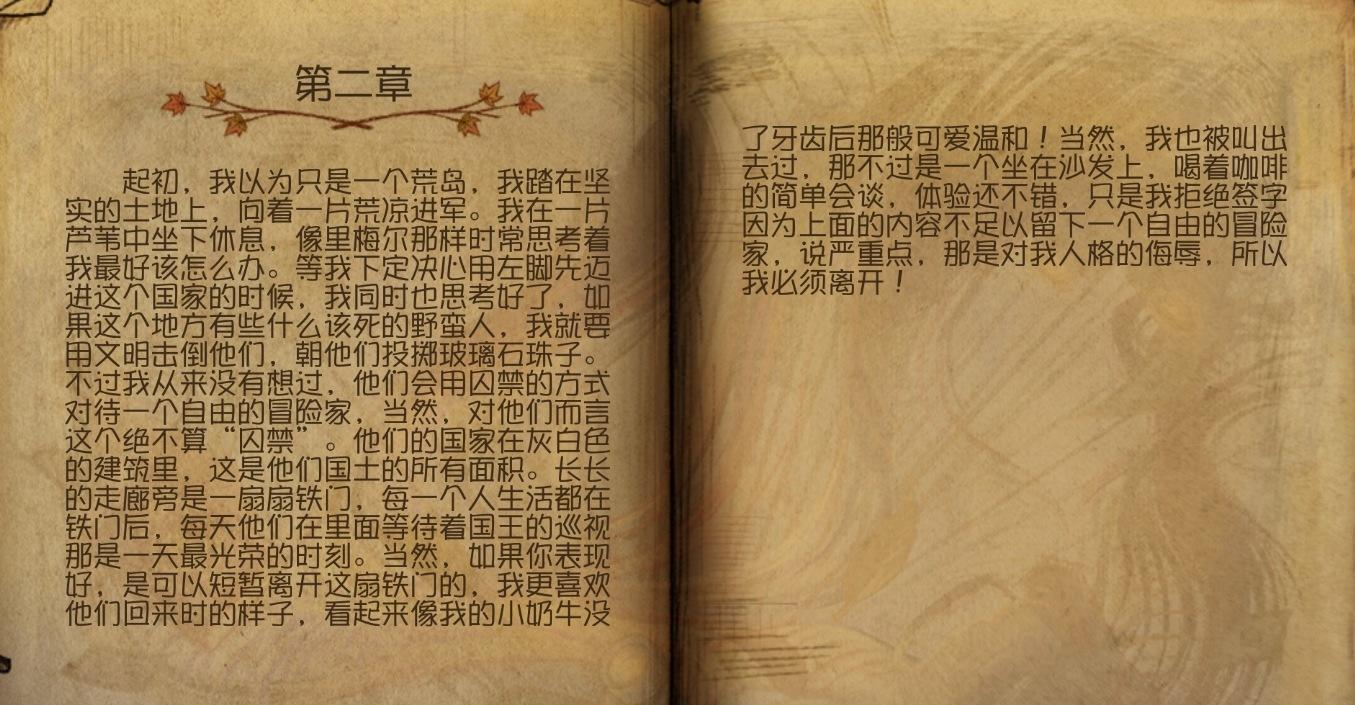 第二章
起初，我以为只是一个荒岛，我踏在坚
实的土地上，向着一片荒凉进军。我在一片
芦苇中坐下休息，像里梅尔那样时常思考着
我最好该怎么办。等我下定决心用左脚先迈
进这个国家的时候，我同时也思考好了，如
果这个地方有些什么该死的野蛮人，我就要
用文明击倒他们，朝他们投掷玻璃石珠子。
不过我从来没有想过，他们会用囚禁的方式
对待一个自由的冒险家，当然，对他们而言
这个绝不算“囚禁”。他们的国家在灰白色
的建筑里，这是他们国土的所有面积。长长
的走廊旁是一扇扇铁门，每一个人生活都在
铁门后，每天他们在里面等待着国王的巡视
那是一天最光荣的时刻。当然，如果你表现
好，是可以短暂离开这扇铁门的，我更喜欢
他们回来时的样子，看起来像我的小奶牛没
了牙齿后那般可爱温和！当然，我也被叫出
去过，那不过是一个坐在沙发上，喝着咖啡
的简单会谈，体验还不错，只是我拒绝签字
因为上面的内容不足以留下一个自由的冒险
家，说严重点，那是对我人格的侮辱，所以
我必须离开！